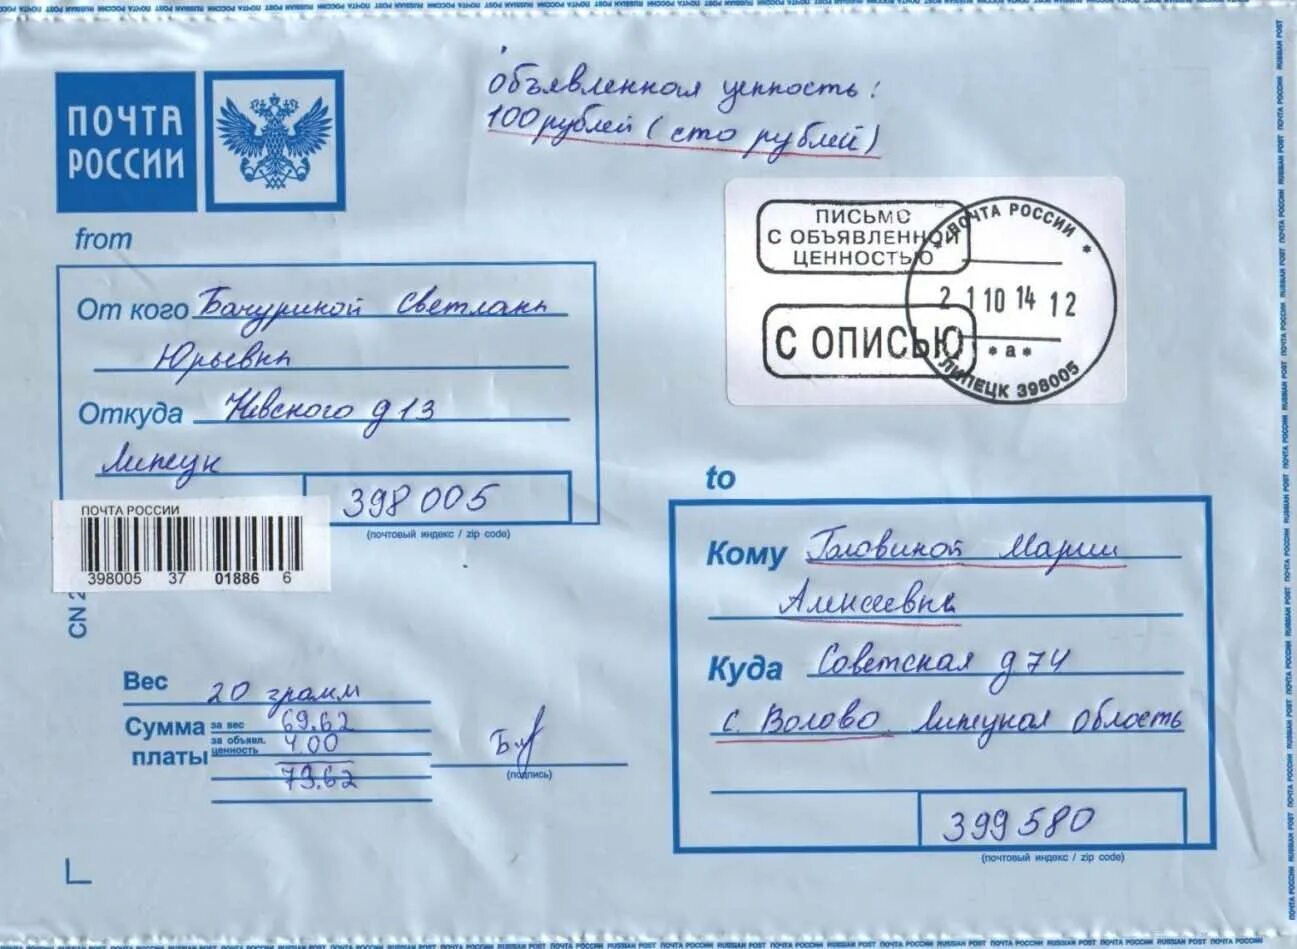 ПОЧТА
РОССИИ
Объявленная ценность:
100 рублей (сто рублей)
ПИСЬМО
С ОБЪЯВЛЕННОЙ
ЦЕННОСТЬЮ
С ОПИСЬЮ
ПОЧТА РОССИИ
2 1 10 14 12
* а *
ЛИПЕЦК 398005
from
От кого Бачуриной Светланы
Юрьевны
Откуда Невского д 13
Липецк
398005
(почтовый индекс / zip code)
ПОЧТА РОССИИ
398005 37 01886 6
CN 2
to
Кому Головиной Марии
Алексеевне
Куда Советская д 74
с. Волово Липецкая область
399580
(почтовый индекс / zip code)
Вес 20 грамм
Сумма за вес 69.62
платы за объявл. ценность 4.00
79.62
(подпись)
ПОЧТА РОССИИ RUSSIAN POST